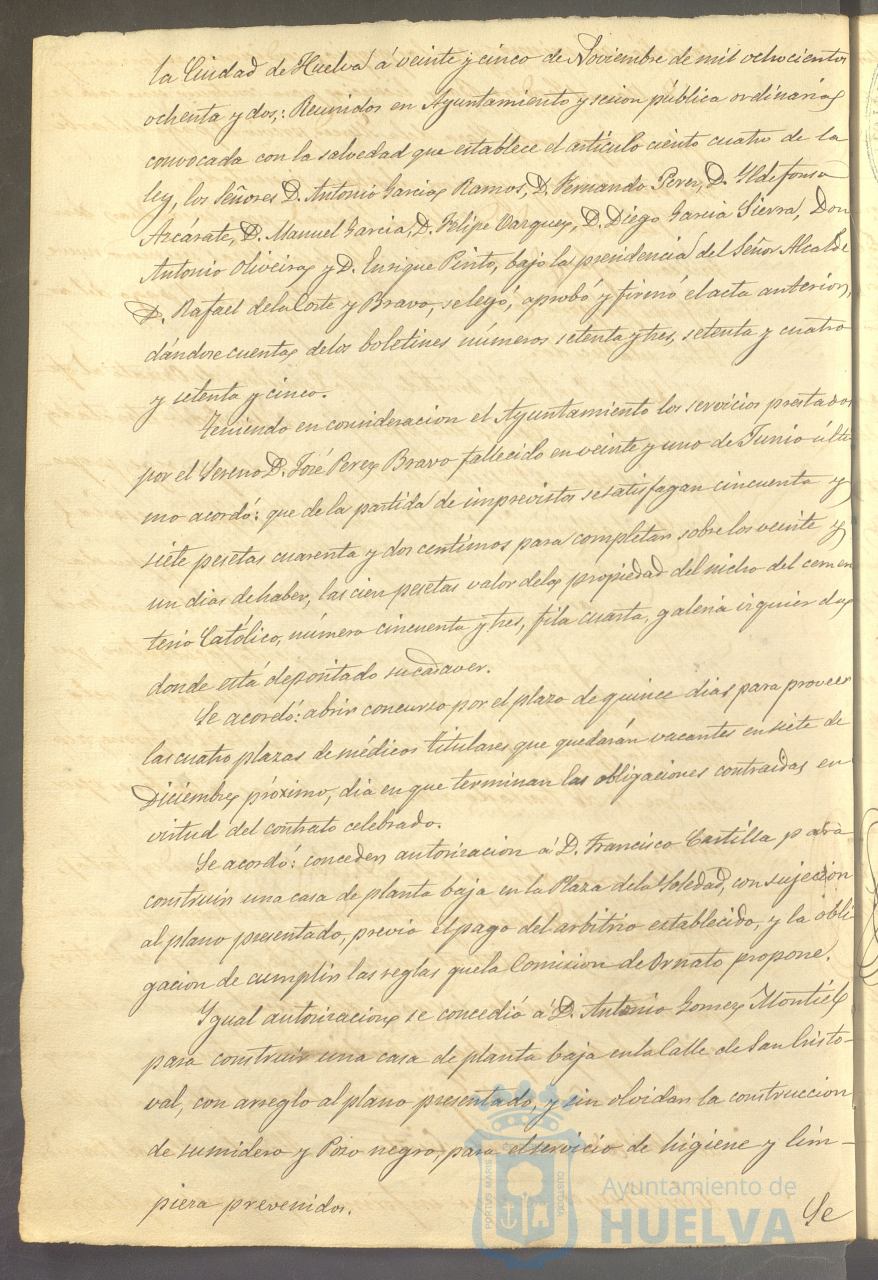 la Ciudad de Huelva á veinte y cinco de Noviembre de mil ochocientos
ochenta y dos,: Reunidos en Ayuntamiento y sesion pública ordinaria
convocada con la salvedad que establece el artículo ciento cuatro de la
ley, los Señores D. Antonio Garcia Ramos, D. Fernando Perez, D. Yldefonso
Azcárate, D. Manuel Garcia, D. Felipe Vazquez, D. Diego Garcia Sierra, Don
Antonio Oliveira y D. Enrique Pinto, bajo la presidencia del Señor Alcalde
D. Rafael de la Corte y Bravo, se leyó, aprobó y firmó el acta anterior,
dándose cuenta de los boletines números setenta y tres, setenta y cuatro
y setenta y cinco.
Teniendo en consideracion el Ayuntamiento los servicios prestados
por el Sereno D. José Perez Bravo fallecido en veinte y uno de Junio últi
mo acordó: que de la partida de imprevistos se satisfagan cincuenta y
siete pesetas cuarenta y dos centimos para completar sobre los veinte y
un dias de haber, las cien pesetas valor de la propiedad del nicho del cemen
terio Católico, número cincuenta y tres, fila cuarta, galeria izquierda
donde está depositado su cadaver.
Se acordó: abrir concurso por el plazo de quince dias para proveer
las cuatro plazas de médicos titulares que quedarán vacantes en siete de
Diciembre próximo, dia en que terminan las obligaciones contraidas en
virtud del contrato celebrado.
Se acordó: conceder autorizacion á D. Francisco Castilla para
construir una casa de planta baja en la Plaza de la Soledad, con sujeccion
al plano presentado, previo el pago del arbitrio establecido, y la obli-
gacion de cumplir las reglas que la Comision de Ornato propone.
Ygual autorizacion se concedió á D. Antonio Gomez Montiel
para construir una casa de planta baja en la Calle de San Cristo-
val, con arreglo al plano presentado, y sin olvidar la construccion
de sumidero y Pozo negro para el servicio de higiene y lim-
pieza prevenidos.
Se
PORTUS MARIS
CUSTODIA
Ayuntamiento de
HUELVA